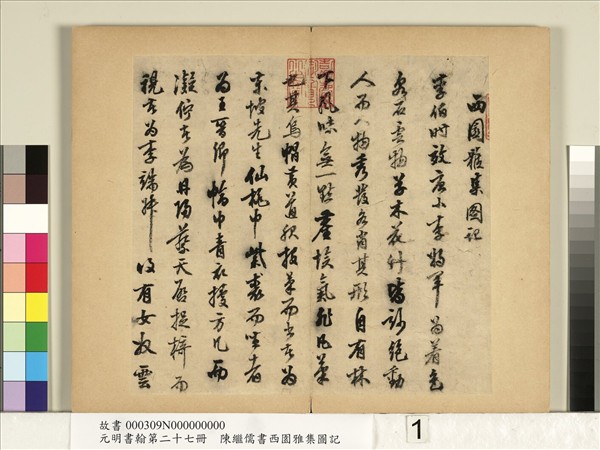 西園雅集圖記
李伯時效唐小李將軍為著色
泉石雲物草木花竹皆妙絕動
人而人物秀發各肖其形自有林
下風味無一點塵埃氣非凡筆
也其烏帽黃道服投筆而書者為
東坡先生仙桃巾紫裘而坐者
為王晉卿幅巾青衣據方几而
凝佇者為丹陽蔡天啟捉椅而
視者為李端叔後有女奴雲
故書 000309N000000000
元明書翰第二十七冊 陳繼儒書西園雅集圖記
1